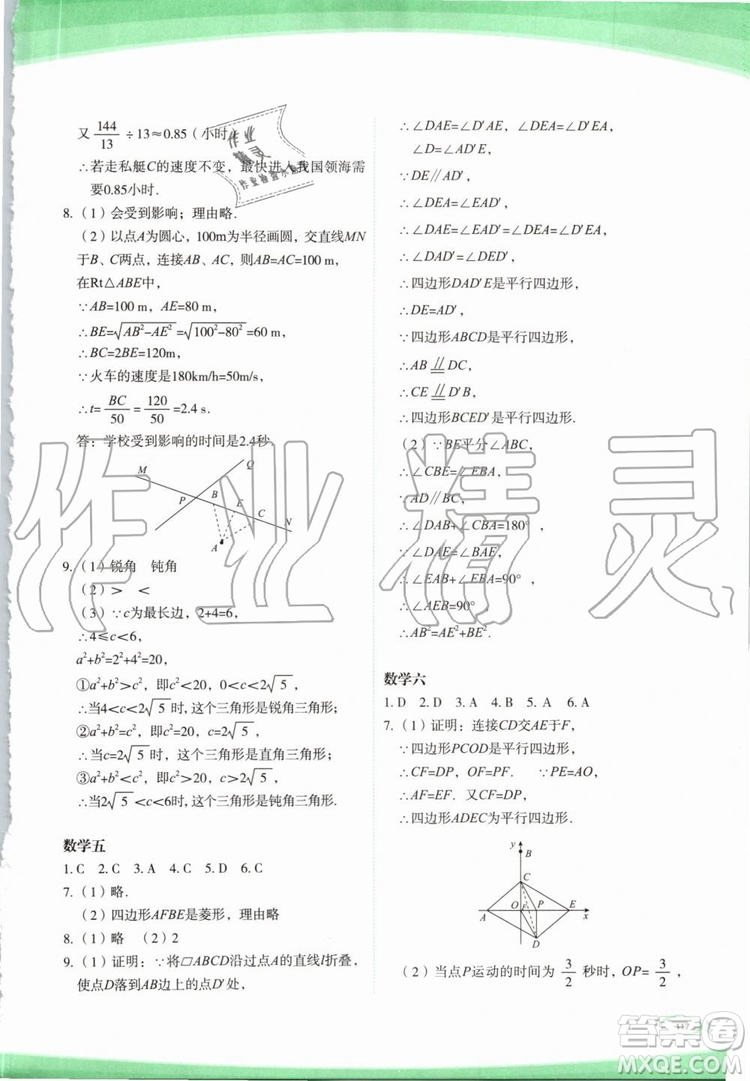 又144/13÷13≈0.85（小时）
∴若走私艇C的速度不变，最快进入我国领海需
要0.85小时.
8.（1）会受到影响；理由略.
（2）以点A为圆心，100m为半径画圆，交直线MN
于B、C两点，连接AB、AC，则AB=AC=100m.
在Rt△ABE中
∵AB=100 m，AE=80 m，
∴BE=√(AB²-AE²)=√(100²-80²)=60 m，
∴BC=2BE=120m，
∵火车的速度是180km/h=50m/s，
∴t=BC/50=120/50=2.4 s.
答：学校受到影响的时间是2.4秒.
M
Q
P
B
E
C
N
A
9.（1）锐角 钝角
（2）> <
（3）∵c为最长边，2+4=6，
∴4≤c<6，
a²+b²=2²+4²=20，
①a²+b²>c²，即c²<20，0<c<2√5，
∴当4≤c<2√5时，这个三角形是锐角三角形；
②a²+b²=c²，即c²=20，c=2√5，
∴当c=2√5时，这个三角形是直角三角形；
③a²+b²<c²，即c²>20，c>2√5，
∴当2√5<c<6时，这个三角形是钝角三角形.
数学五
1. C 2. C 3. A 4. C 5. C 6. C
7.（1）略.
（2）四边形AFBE是菱形，理由略
8.（1）略 （2）2
9.（1）证明：∵将▱ABCD沿过点A的直线l折叠，
使点D落到AB边上的点D′处，
∴∠DAE=∠D′AE，∠DEA=∠D′EA，
∠D=∠AD′E，
∵DE∥AD′，
∴∠DEA=∠EAD′，
∴∠DAE=∠EAD′=∠DEA=∠D′EA，
∴∠DAD′=∠DED′，
∴四边形DAD′E是平行四边形，
∴DE=AD′，
∵四边形ABCD是平行四边形，
∴AB∥=DC，
∴CE∥=D′B，
∴四边形BCED′是平行四边形.
（2）∵BE平分∠ABC，
∴∠CBE=∠EBA，
∵AD∥BC，
∴∠DAB+∠CBA=180°，
∵∠DAE=∠BAE，
∴∠EAB+∠EBA=90°，
∴∠AEB=90°，
∴AB²=AE²+BE².
数学六
1. D 2. D 3. A 4. B 5. A 6. A
7.（1）证明：连接CD交AE于F，
∵四边形PCOD是平行四边形，
∴CF=DP，OF=PF. ∵PE=AO，
∴AF=EF. 又CF=DP，
∴四边形ADEC为平行四边形.
y
B
C
A
O
F
P
E
x
D
（2）当点P运动的时间为3/2秒时，OP=3/2，
作业精灵
作业精灵
答案圈
MXQE.COM